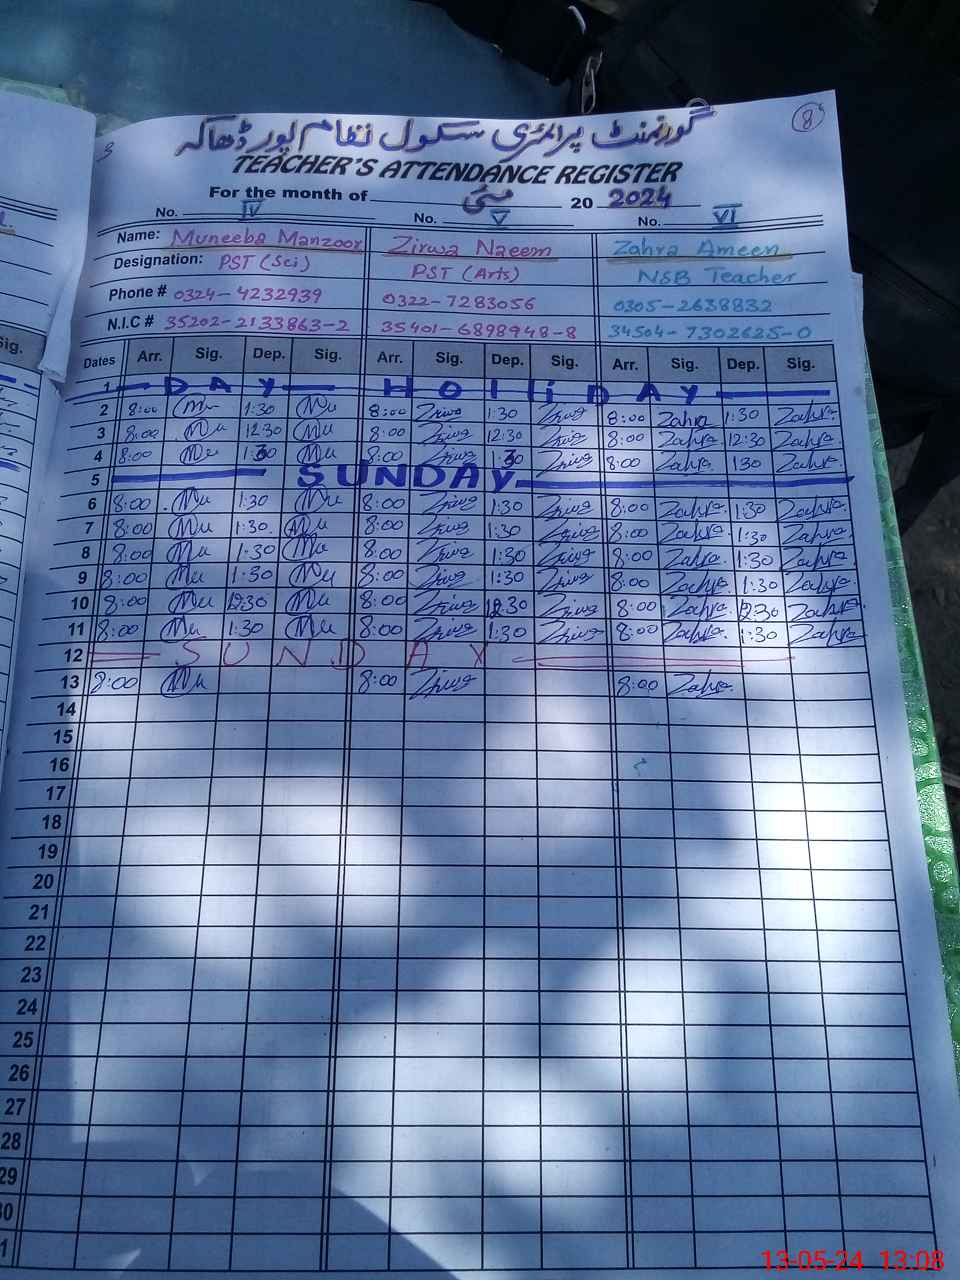 8
گورنمنٹ پرائمری سکول نظام پور ڈھاکہ
TEACHER'S ATTENDANCE REGISTER
For the month of مئی 20 2024
No. IV No. V No. VI
Name: Muneeba Manzoor Zirwa Naeem Zahra Ameen
Designation: PST (Sci) PST (Arts) NSB Teacher
Phone # 0324-4232939 0322-7283056 0305-2638832
N.I.C # 35202-2133863-2 35401-6898948-8 34504-7302625-0
Dates Arr. Sig. Dep. Sig. Arr. Sig. Dep. Sig. Arr. Sig. Dep. Sig.
1 DAY HOLIDAY
2 8:00 Mu 1:30 Mu 8:00 Zirwa 1:30 Zirwa 8:00 Zahra 1:30 Zahra
3 8:00 Mu 12:30 Mu 8:00 Zirwa 12:30 Zirwa 8:00 Zahra 12:30 Zahra
4 8:00 Mu 1:30 Mu 8:00 Zirwa 1:30 Zirwa 8:00 Zahra 130 Zahra
5 SUNDAY
6 8:00 Mu 1:30 Mu 8:00 Zirwa 1:30 Zirwa 8:00 Zahra 1:30 Zahra
7 8:00 Mu 1:30 Mu 8:00 Zirwa 1:30 Zirwa 8:00 Zahra 1:30 Zahra
8 8:00 Mu 1:30 Mu 8:00 Zirwa 1:30 Zirwa 8:00 Zahra 1:30 Zahra
9 8:00 Mu 1:30 Mu 8:00 Zirwa 1:30 Zirwa 8:00 Zahra 1:30 Zahra
10 8:00 Mu 12:30 Mu 8:00 Zirwa 12:30 Zirwa 8:00 Zahra 12:30 Zahra
11 8:00 Mu 1:30 Mu 8:00 Zirwa 1:30 Zirwa 8:00 Zahra 1:30 Zahra
12 SUNDAY
13 8:00 Mu 8:00 Zirwa 8:00 Zahra
14
15
16
17
18
19
20
21
22
23
24
25
26
27
28
29
30
31
13-05-24 13:08